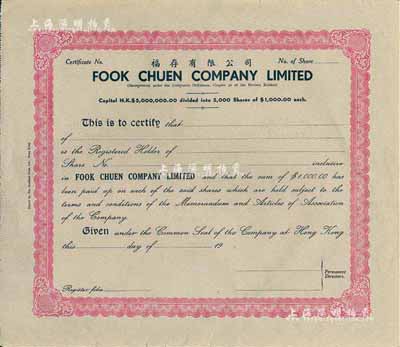 上海阳明拍卖
Certificate No. No. of Share
福存有限公司
FOOK CHUEN COMPANY LIMITED
(Incorporated under the Companies Ordinance, Chapter 32 of the Revised Edition)
Capital H.K.$5,000,000.00 divided into 5,000 Shares of $1,000.00 each.
This is to certify that
of
is the Registered Holder of
Share No. inclusive
in FOOK CHUEN COMPANY LIMITED and that the sum of $1,000.00 has
been paid up on each of the said shares which are held subject to the
terms and conditions of the Memorandum and Articles of Association
of the Company.
Given under the Common Seal of the Company at Hong Kong
this day of 19
Permanent
Directors.
Register folio